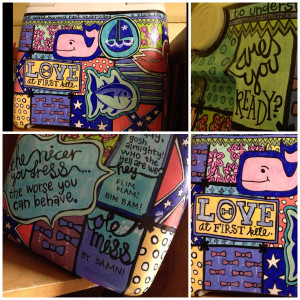 LOVE
at FIRST kille.
to underst
are
you
READY?
the nicer
you dress...
the worse you
can behave.
gosh,
almighty!
WHO the
yell are we?
hey
FLIM
FLAM!
BIM BAM!
ole
MESS
BY DAMN!
LOVE
at FIRST kille.